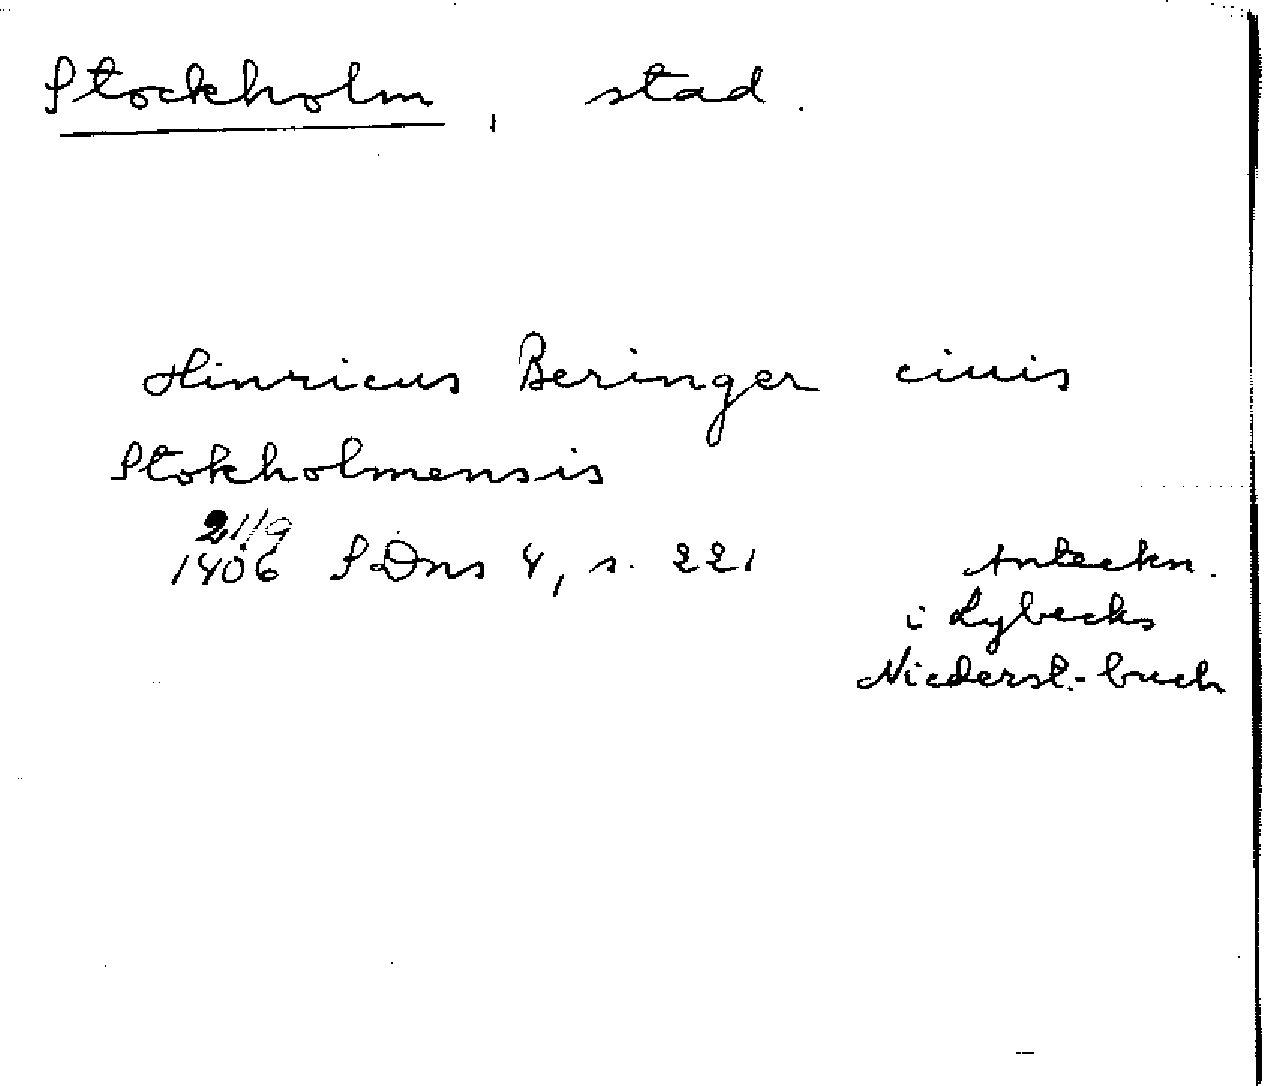 Stockholm, stad.
Hinricus Beringer ciuis
Stokholmensis
21/9
1406 SDns 4, s. 221 Anteckn.
i Lybecks
Niederst.-buch